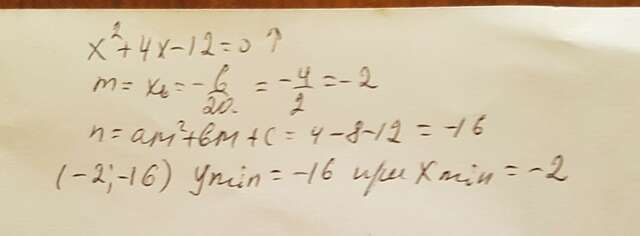 x²+4x-12=0 ↑
m = xв = -в/2a = -4/2 = -2
n = am²+вm+c = 4-8-12 = -16
(-2;-16) ymin = -16 при xmin = -2